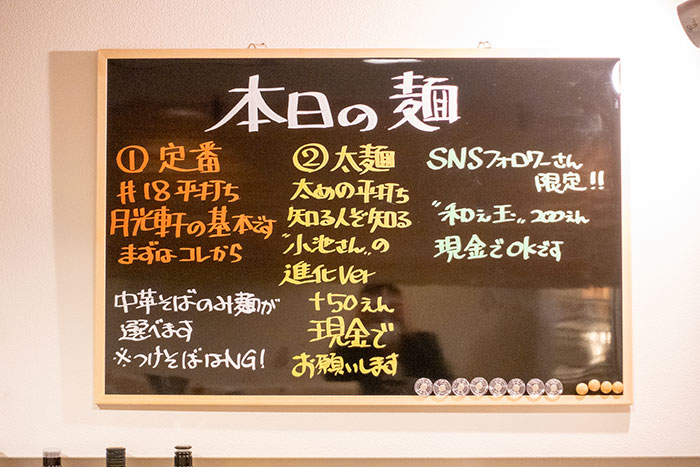 本日の麺
① 定番
#18平打ち
月光軒の基本です
まずはコレから
中華そばのみ麺が
選べます
※つけそばはNG!
② 太麺
太めの平打ち
知る人ぞ知る
"小池さん"の
進化Ver
+50えん
現金で
お願いします
SNSフォロワーさん
限定!!
"和え玉" 200えん
現金でOKです